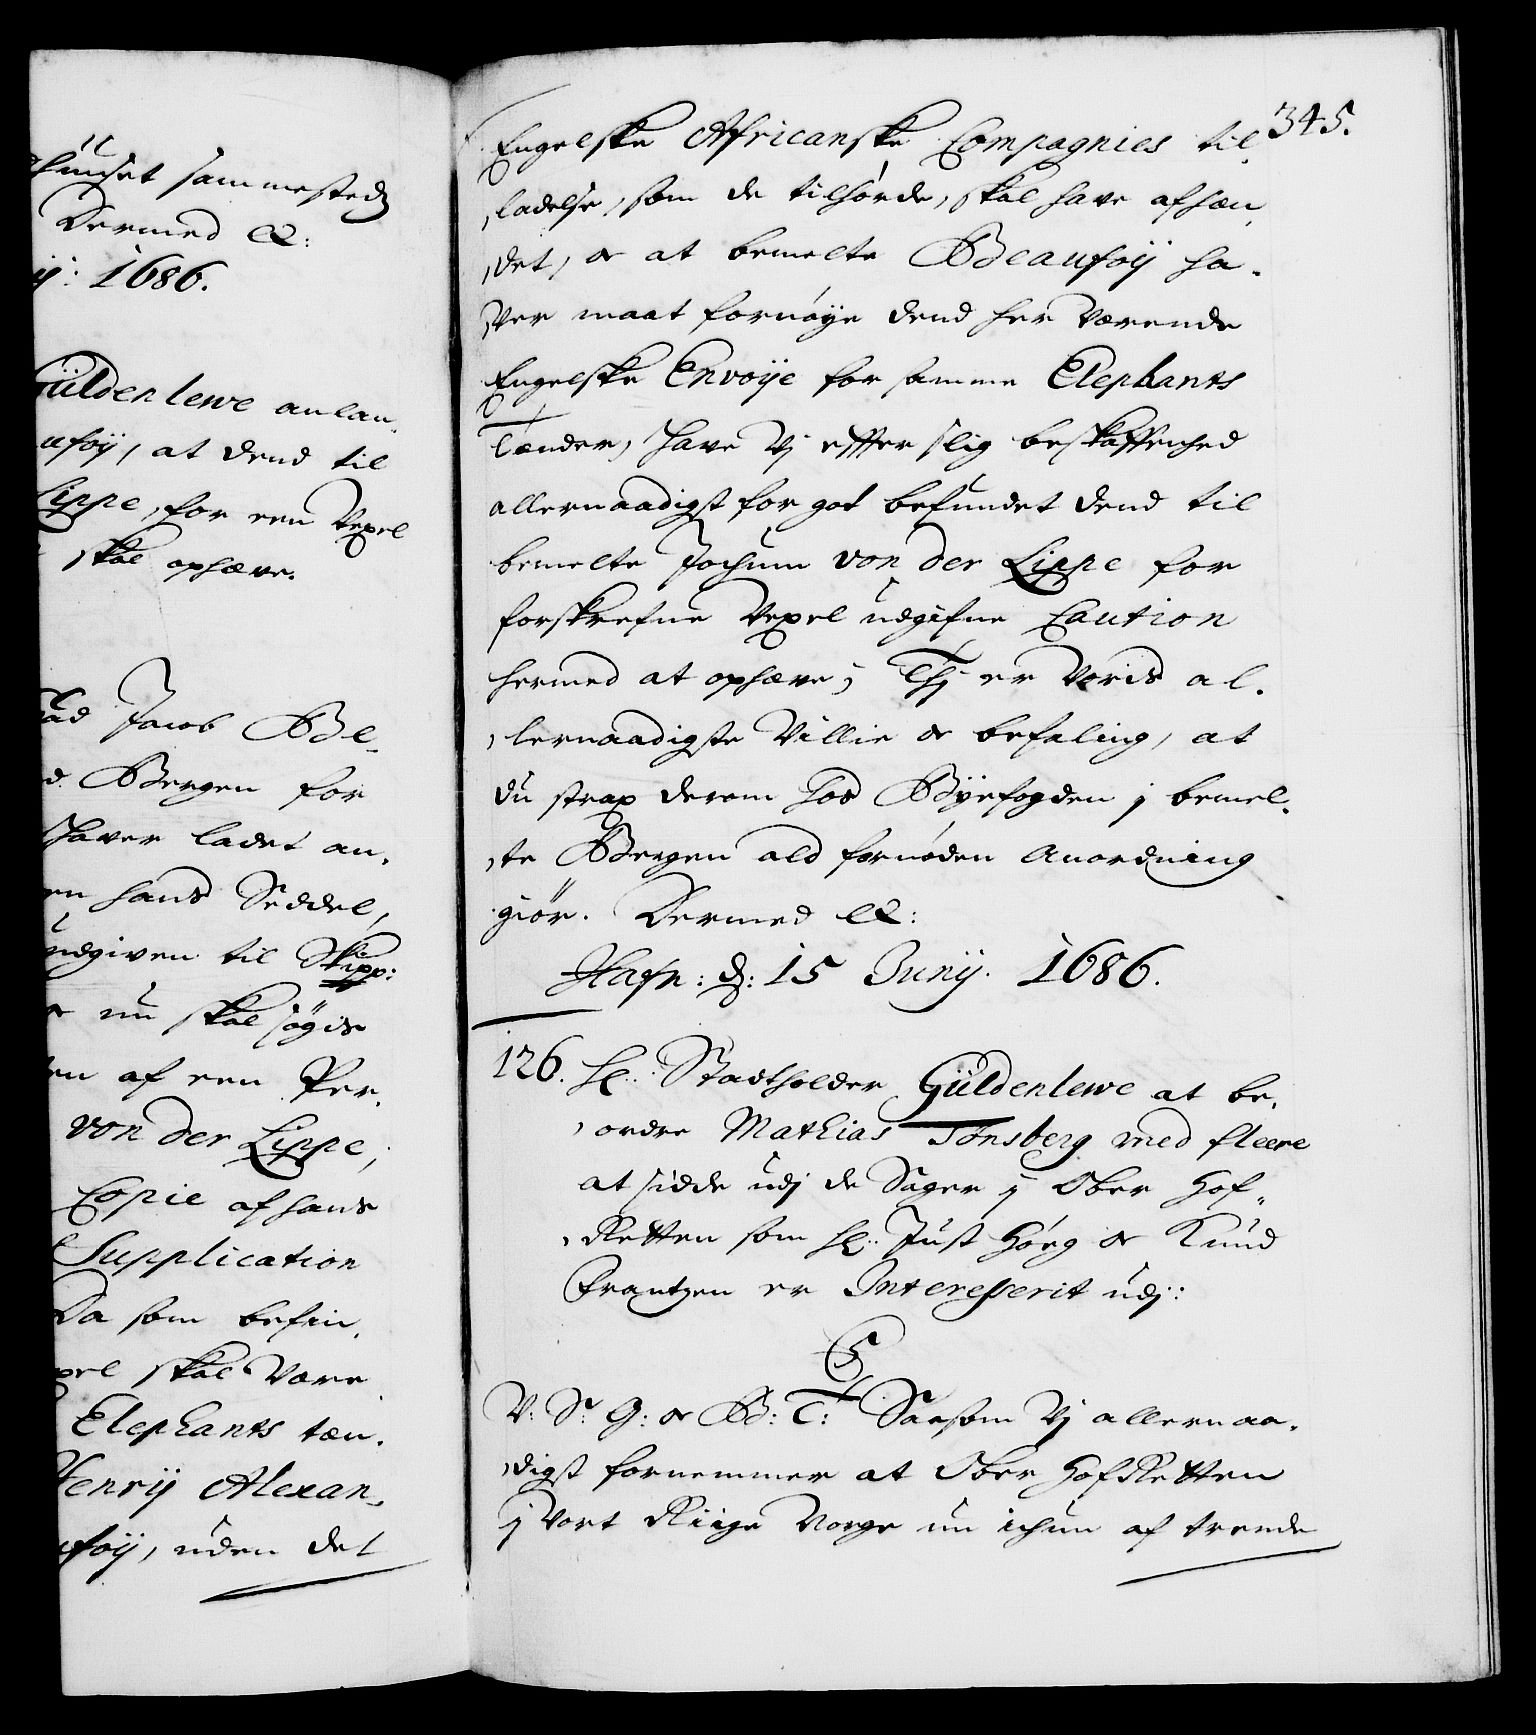 huuset sammesteds
Dermed &:
ij: 1686.
Güldenlewe anlan,
ufoÿ, at dend til
Lippe, for een Vexel
skal ophæve.
Jacob Be,
Bergen for
haver ladet an,
hans Seddel,
udgiven til Skipp:
nu skal søgis
af een Per,
von der Lippe,
Copie af hans
Supplication
Da som befin,
skal være
Elephants tæn,
Henrÿ Alexan,
foÿ, uden det
345.
Engelske Africanske Compagnies til,
,ladelse, som de tilhørde, skal have afhæn,
,det, oc at bemelte Beaufoÿ ha,
,ver maat fornøye dend her værende
Engelske Envoÿe for samme Elephants
Tænder, Have Vj effter slig beskaffenhed
allernaadigst for got befundet dend til
bemelte Jochum von der Lippe for
forskrefne Vexel udgifne Caution
hermed at ophæve; Thj er Voris al,
,lernaadigste Villie oc befaling, at
du strax derom hos Bÿefogden j bemel,
,te Bergen ald fornøden Anordning
giør. Dermed &:
Hafn: d: 15 Junÿ. 1686.
126. H: Stadtholder Güldenlewe at be,
,ordre Mathias Tønsberg med fleere
at sidde udj de Sager j Ober Hof,
,Retten som H: Just Høeg oc Knud
Frantzen er Interesserit udj:
C5
V: S: G: oc B: T: Saasom Vj allernaa,
,digst fornemmer at Ober HofRetten
j Vort Riige Norge nu ichun af trende